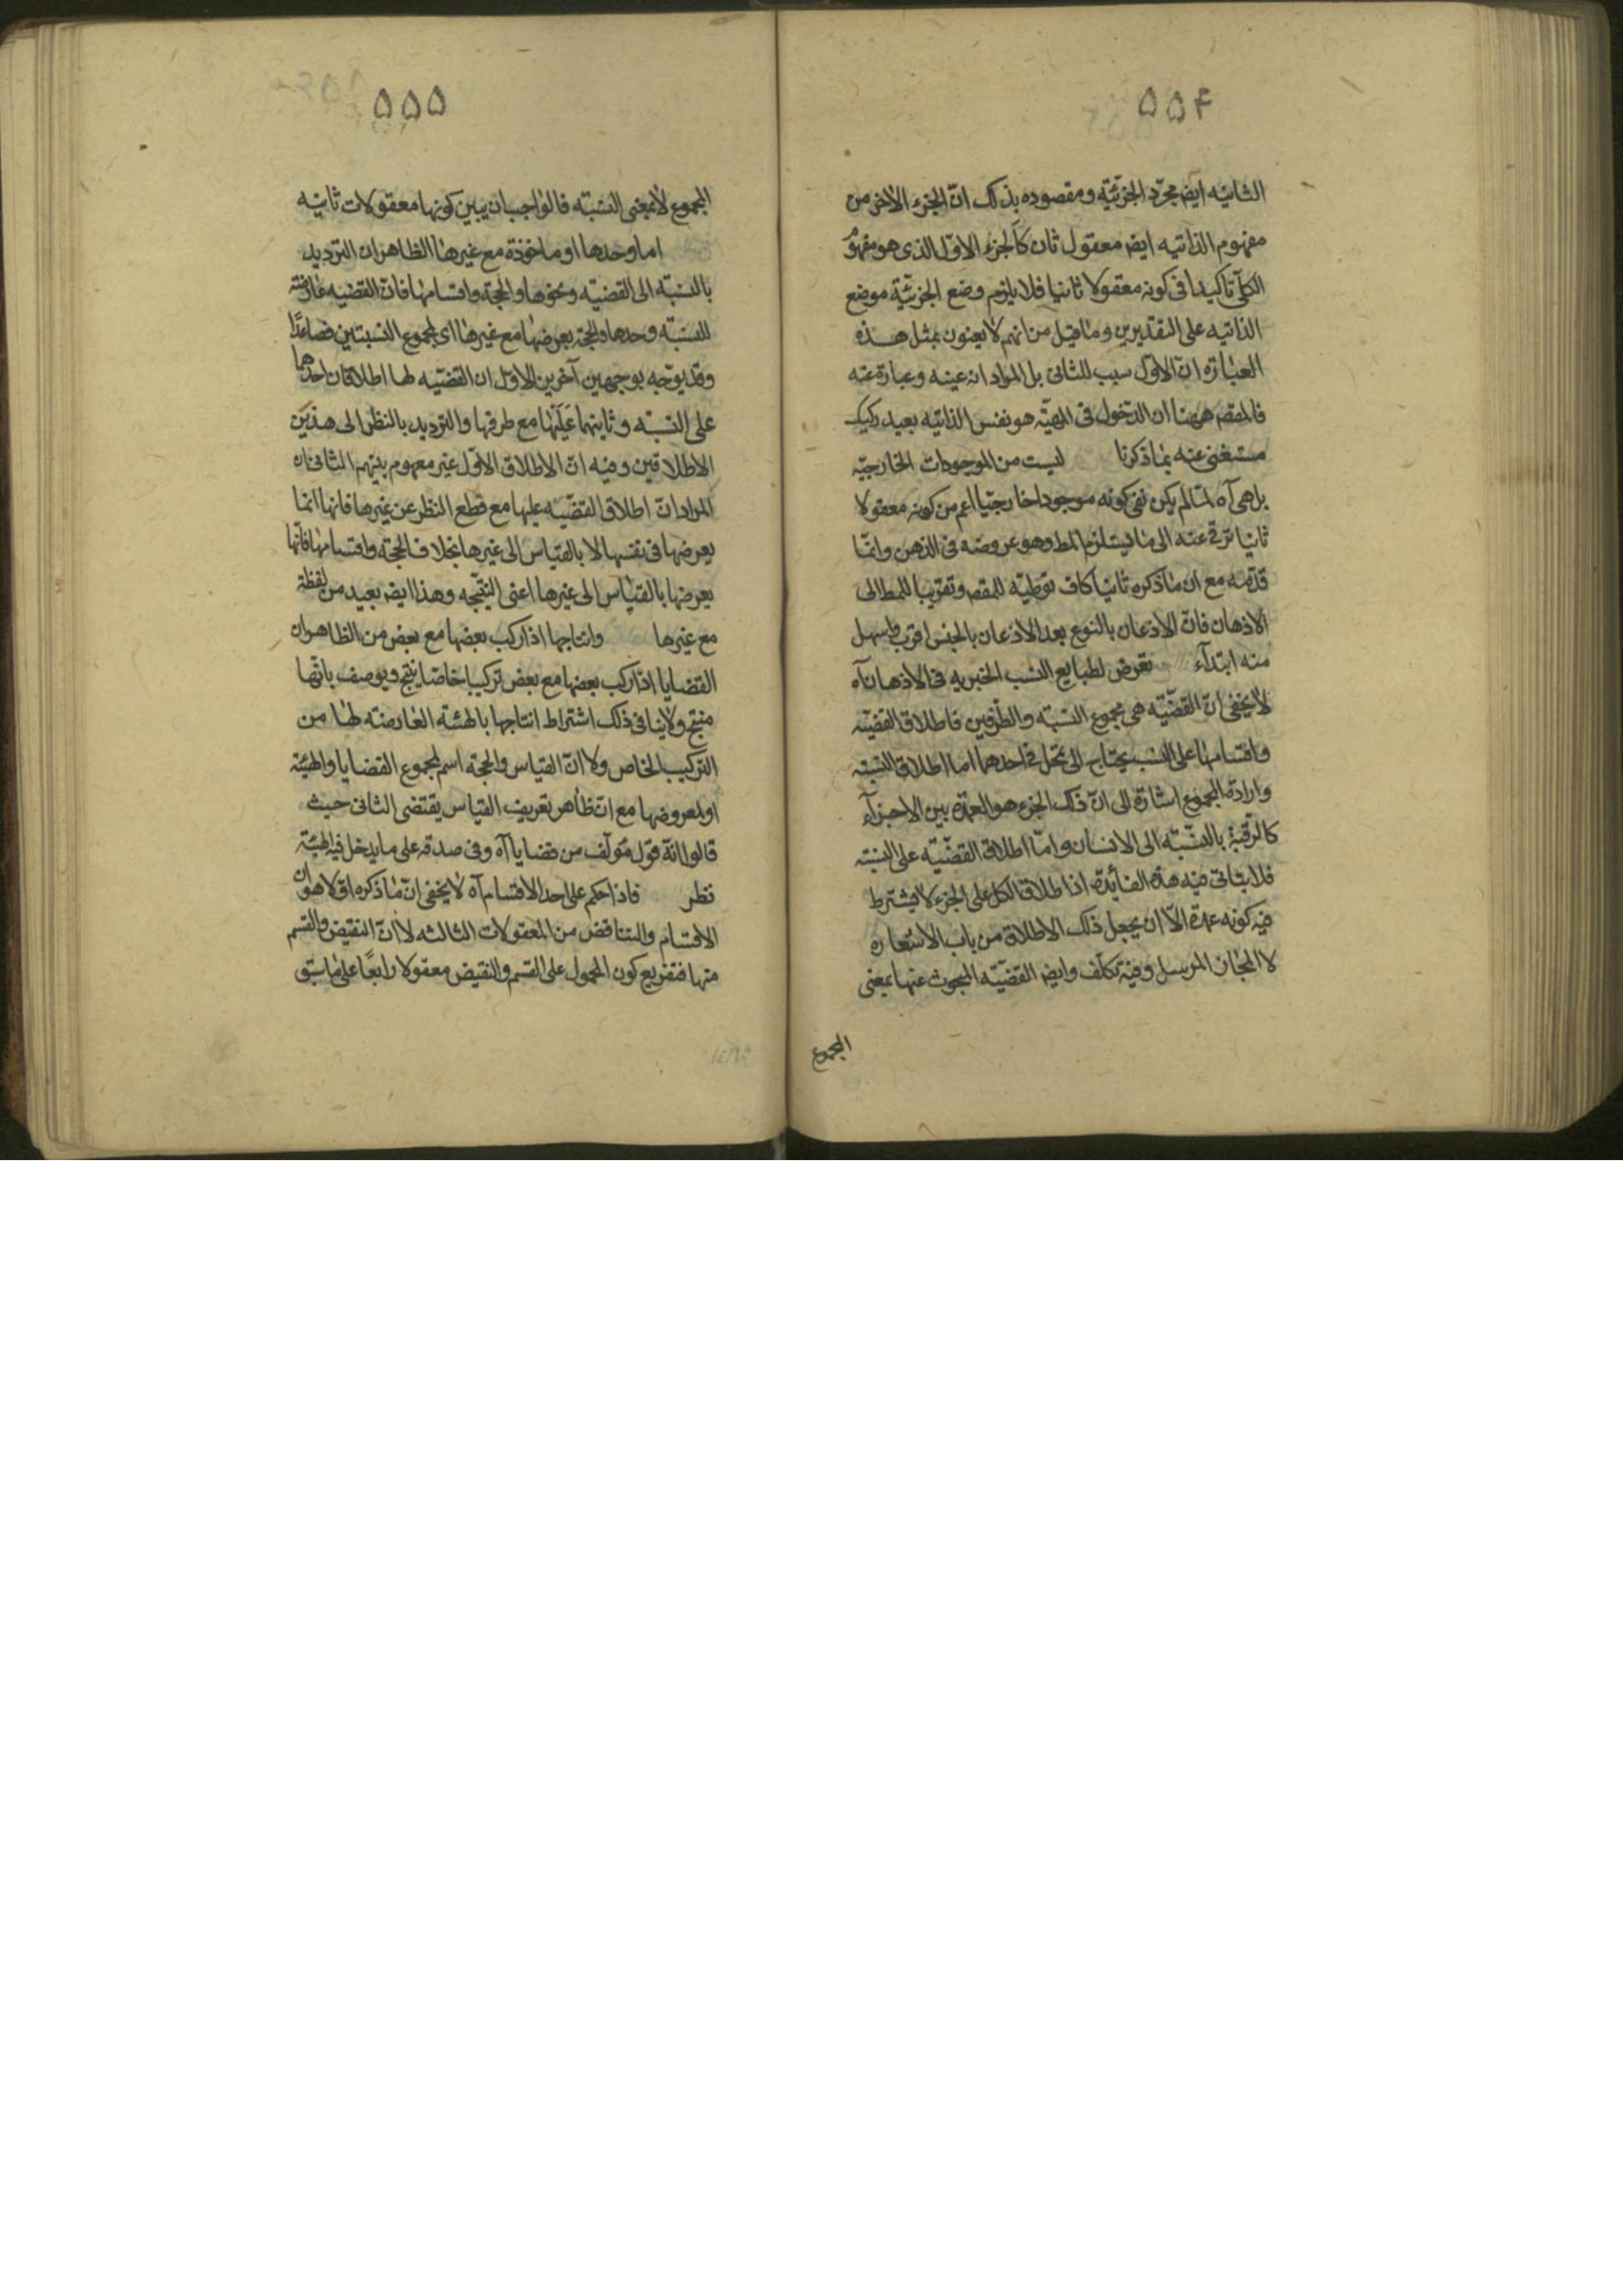 ۵۵۴
الثانیه ایضا مجرّد الجزئیّة ومقصوده بذلک انّ الجزء الاخر من
مفهوم الذاتیه ایض معقول ثان کالجزء الاوّل الذی هو مفهوم
الکلّی تاکیدا فی کونه معقولا ثانیا فلا یلزم وضع الجزئیّة موضع
الذاتیه علی التقدیرین وما قیل من انهم لا یعنون بمثل هذه
العبارة انّ الاوّل سبب للثانی بل المراد انه عینه وعبارة عنه
فالمقصر ههنا ان الدّخول فی المهیّة هو نفس الذاتیه بعید رکیک
مستغنی عنه بما ذکرنا لیست من الموجودات الخارجیّه
بل هی آه لمّا لم یکن نفی کونه موجودا خارجیّا اعم من کونه معقولا
ثانیا ترقی عنه الی ما یستلزم المط وهو عروضه فی الذهن وانّما
قدّمه مع ان ما ذکره ثانیا کاف توطیه للمقصر وتقریبا للمط الی
الاذهان فانّ الاذعان بالنوع بعد الاذعان بالجنس اقرب واسهل
منه ابتدآء تعرض لطبایع النسب الخبریه فی الاذهان آه
لا یخفی انّ القضیّه هی مجموع النسبة والطّرفین فاطلاق القضیّه
واقسامها علی النسب یحتاج الی تمحّل فی احدهما اما اطلاق النسبته
وارادة المجموع اشارة الی انّ ذلک الجزء هو العمدة بین الاجزآء
کالرّقبة بالنسّبة الی الانسان وامّا اطلاق القضیّه علی النسبته
فلا یتاتی فیه هذه الفائدة اذ اطلاق الکل علی الجزء لا یشترط
فیه کونه عمدة الّا ان یجعل ذلک الاطلاق من باب الاستعاره
لا المجاز المرسل وفیه تکلّف وایض القضیّه المبحوث عنها بمعنی
المجموع
۵۵۵
المجموع لا بمعنی النسبّه فالواجب ان یبین کونها معقولات ثانیه
اما وحدها او ماخوذة مع غیرها الظاهر ان التردید
بالنسبّة الی القضیّه ونحوها والحجّة واقسامها فانّ القضیه عارضة
للنسبّه وحدها والحجّة یعرضها مع غیرها ای لمجموع النسبتین فصاعدًا
وقد یوجّه بوجهین آخرین الاوّل ان القضیّه لها اطلاقان احدهما
علی النسبّه وثانیهما علیها مع طرفیها والتردید بالنظر الی هذین
الاطلاقین وفیه انّ الاطلاق الاوّل غیر معهوم بینهم الثانی ان
المراد انّ اطلاق القضیّه علیها مع قطع النظر عن غیرها فانها انما
یعرضها فی نفسها لا بالقیاس الی غیرها بخلاف الحجّة واقسامها فانّها
یعرضها بالقیاس الی غیرها اعنی النتیّجه وهذا ایض بعید من لفظة
مع غیرها وانتاجها اذا رکب بعضها مع بعض من الظاهر ان
القضایا اذا رکب بعضها مع بعض ترکیبا خاصّا ینتج ویوصف بانّها
منتج ولا ینافی ذلک اشتراط انتاجها بالهیئة العارضه لها من
الترکیب الخاص ولا انّ القیاس والحجة اسم لمجموع القضایا والهیئة
او لمعروضها مع ان ظاهر تعریف القیاس یقتضی الثانی حیث
قالوا انّه قول مؤلّف من قضایا آه وفی صدقه علی ما یدخل فیه الهیئة
نظر فاذا حکم علی احد الاقسام آه لا یخفی انّ ما ذکره اوّلا هو ان
الاقسام والتناقض من المعقولات الثالثه لا انّ النقیض والقسم
منها فتفریع کون المحمول علی القسم والنقیض معقولا رابعًا علی ما سبق